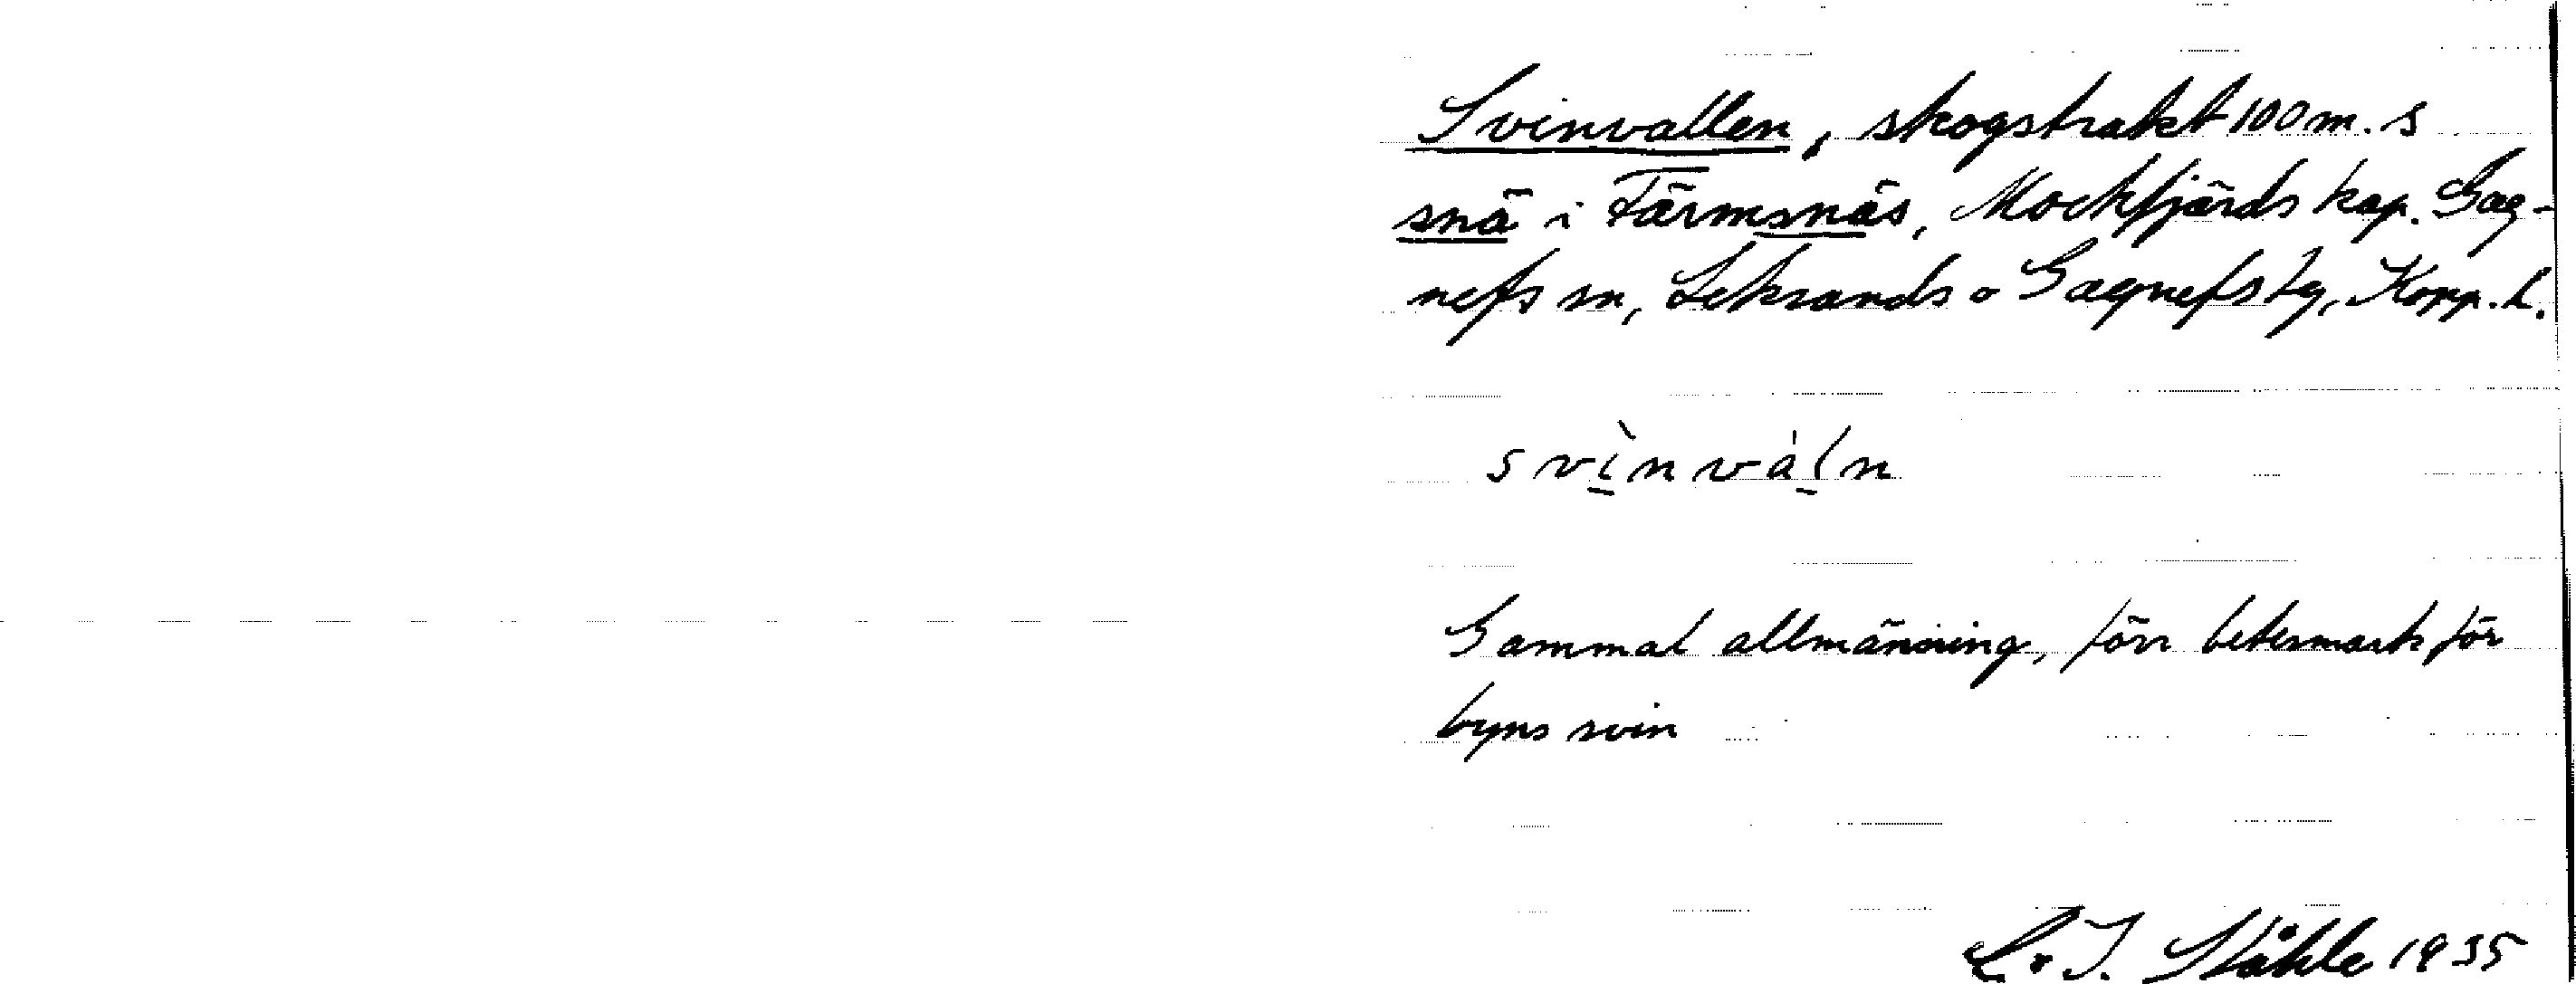 Svinvallen, skogstrakt 100 m. S
snä i Tärmsnäs, Mockfjärds kap. Gag-
nefs sn, Leksands o Gagnefs tg, Kopp. l.
svìnvàln
Gammal allmänning, förr betesmark för
byns svin
C. I. Ståhle 1935